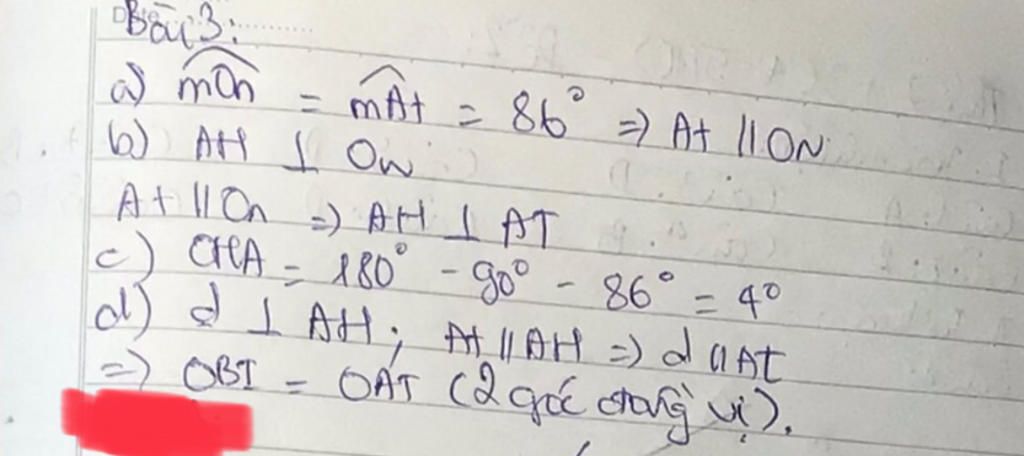 Bài 3:
a) mOn = mAt = 86° => At // ON
b) AH ⊥ On
At // On => AH ⊥ AT
c) OHA = 180° - 90° - 86° = 4°
d) d ⊥ AH; At // AH => d // At
=> OBI = OAT (2 góc đồng vị).